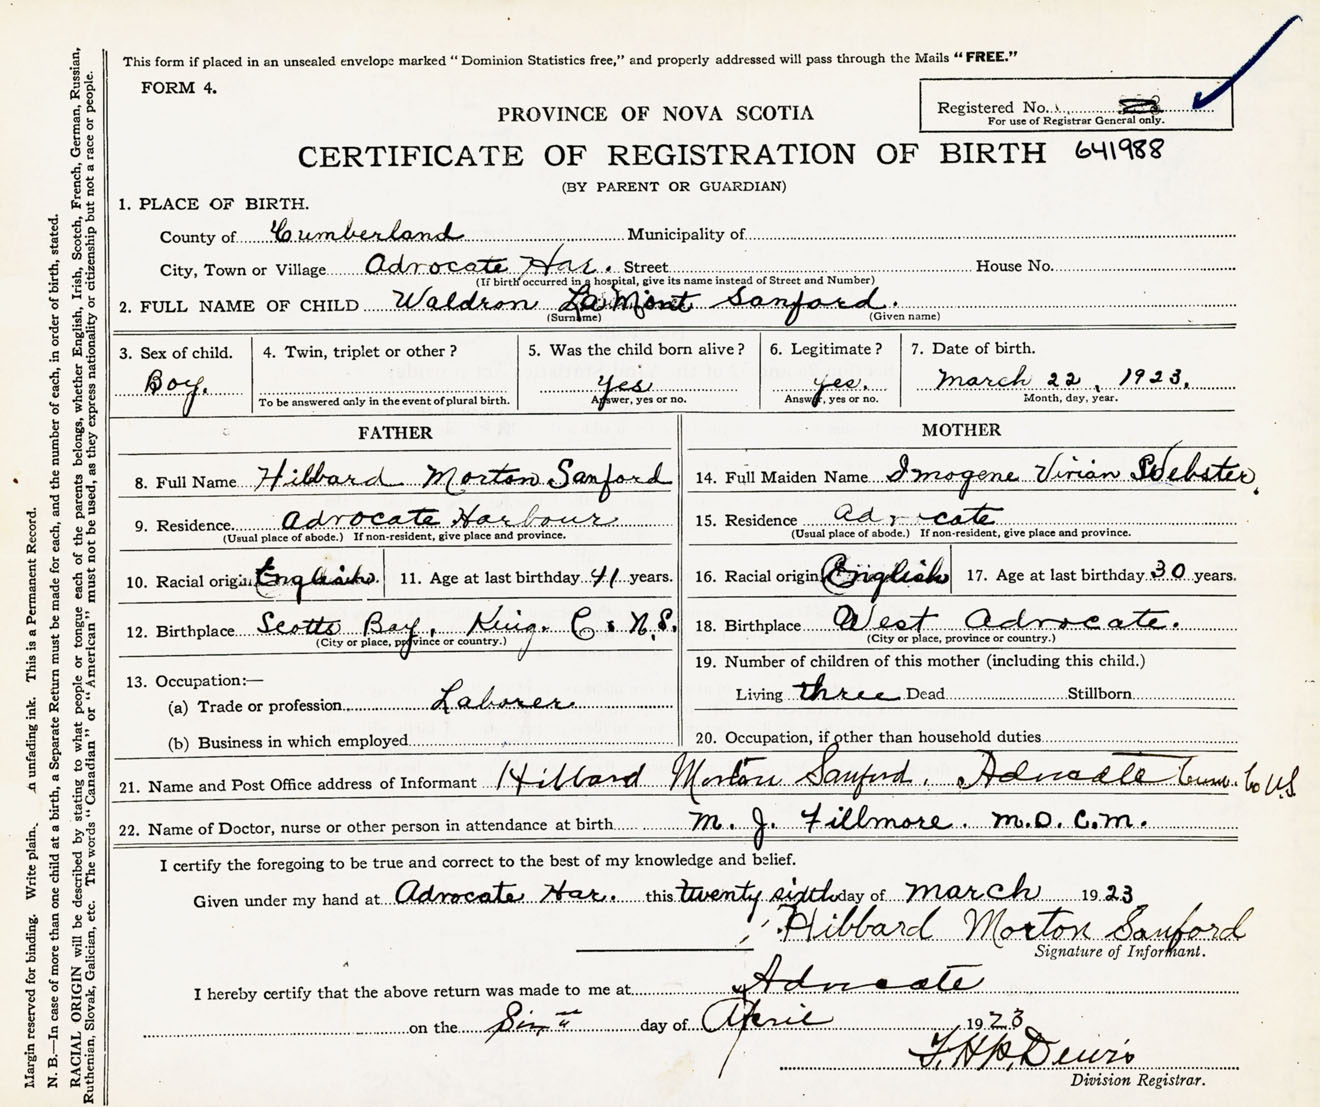 This form if placed in an unsealed envelope marked "Dominion Statistics free," and properly addressed will pass through the Mails "FREE."
FORM 4.
Registered No.
For use of Registrar General only.
PROVINCE OF NOVA SCOTIA
CERTIFICATE OF REGISTRATION OF BIRTH 641988
(BY PARENT OR GUARDIAN)
1. PLACE OF BIRTH.
County of Cumberland Municipality of
City, Town or Village Advocate Har. Street House No.
(If birth occurred in a hospital, give its name instead of Street and Number)
2. FULL NAME OF CHILD Waldron La Mont Sanford.
(Surname) (Given name)
3. Sex of child. 4. Twin, triplet or other? 5. Was the child born alive? 6. Legitimate? 7. Date of birth.
Boy. yes yes. March 22, 1923.
To be answered only in the event of plural birth. Answer, yes or no. Answer, yes or no. Month, day, year.
FATHER
8. Full Name Hibbard Morton Sanford
9. Residence Advocate Harbour
(Usual place of abode.) If non-resident, give place and province.
10. Racial origin English. 11. Age at last birthday 41 years.
12. Birthplace Scotts Bay, King. Co N.S.
(City or place, province or country.)
13. Occupation:—
(a) Trade or profession Laborer
(b) Business in which employed
MOTHER
14. Full Maiden Name Imogene Vivian Webster.
15. Residence Advocate
(Usual place of abode.) If non-resident, give place and province.
16. Racial origin English 17. Age at last birthday 30 years.
18. Birthplace West Advocate.
(City or place, province or country.)
19. Number of children of this mother (including this child.)
Living three Dead Stillborn
20. Occupation, if other than household duties
21. Name and Post Office address of Informant Hibbard Morton Sanford, Advocate Cum. Co N.S
22. Name of Doctor, nurse or other person in attendance at birth M. J. Fillmore. M.D. C.M.
I certify the foregoing to be true and correct to the best of my knowledge and belief.
Given under my hand at Advocate Har. this twenty sixth day of March 1923
Hibbard Morton Sanford
Signature of Informant.
I hereby certify that the above return was made to me at Advocate
on the day of April 1923
Dewis
Division Registrar.
Margin reserved for binding. Write plain. unfading ink. This is a Permanent Record.
N. B.—In case of more than one child at a birth, a Separate Return must be made for each, and the number of each, in order of birth, stated.
RACIAL ORIGIN will be described by stating to what people or tongue each of the parents belongs, whether English, Irish, Scotch, French, German, Russian,
Ruthenian, Slovak, Galician, etc. The words "Canadian" or "American" must not be used, as they express nationality or citizenship but not a race or people.